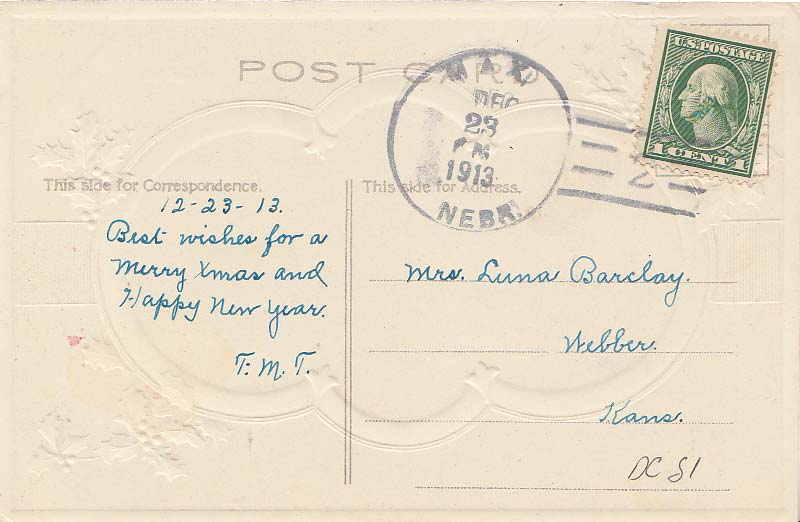 POST CARD
MAX
DEC
23
PM
1913
NEBR.
U.S. POSTAGE
1 CENT 1
This side for Correspondence.
This side for Address.
12-23-13.
Best wishes for a
Merry Xmas and
Happy New Year.
T. M. T.
Mrs. Luna Barclay.
Webber.
Kans.